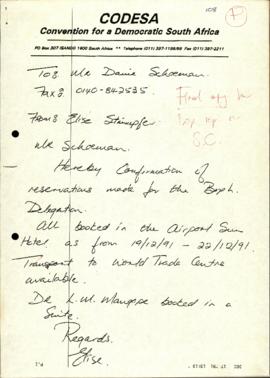 108
CODESA
Convention for a Democratic South Africa
PO Box 307 ISANDO 1600 South Africa ** Telephone (011) 397-1198/99 Fax (011) 397-2211
To: Mr Danie Schoeman.
Fax: 0140-842535.
From: Elise Stempfer
Mr Schoeman.
Hereby Confirmation of
reservations made for the Boph.
Delegation.
All booked in the Airport Sun
Hotel as from 19/12/91 - 22/12/91.
Transport to World Trade Centre
available.
Dr L.M. Mangope booked in a
Suite.
Regards.
Elise.
P.1